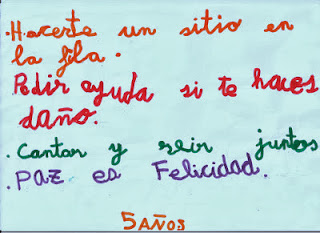 .Hacerte un sitio en
la fila.
Pedir ayuda si te haces
daño.
.Cantar y reir juntos
.PAZ es Felicidad.
5 AÑOS